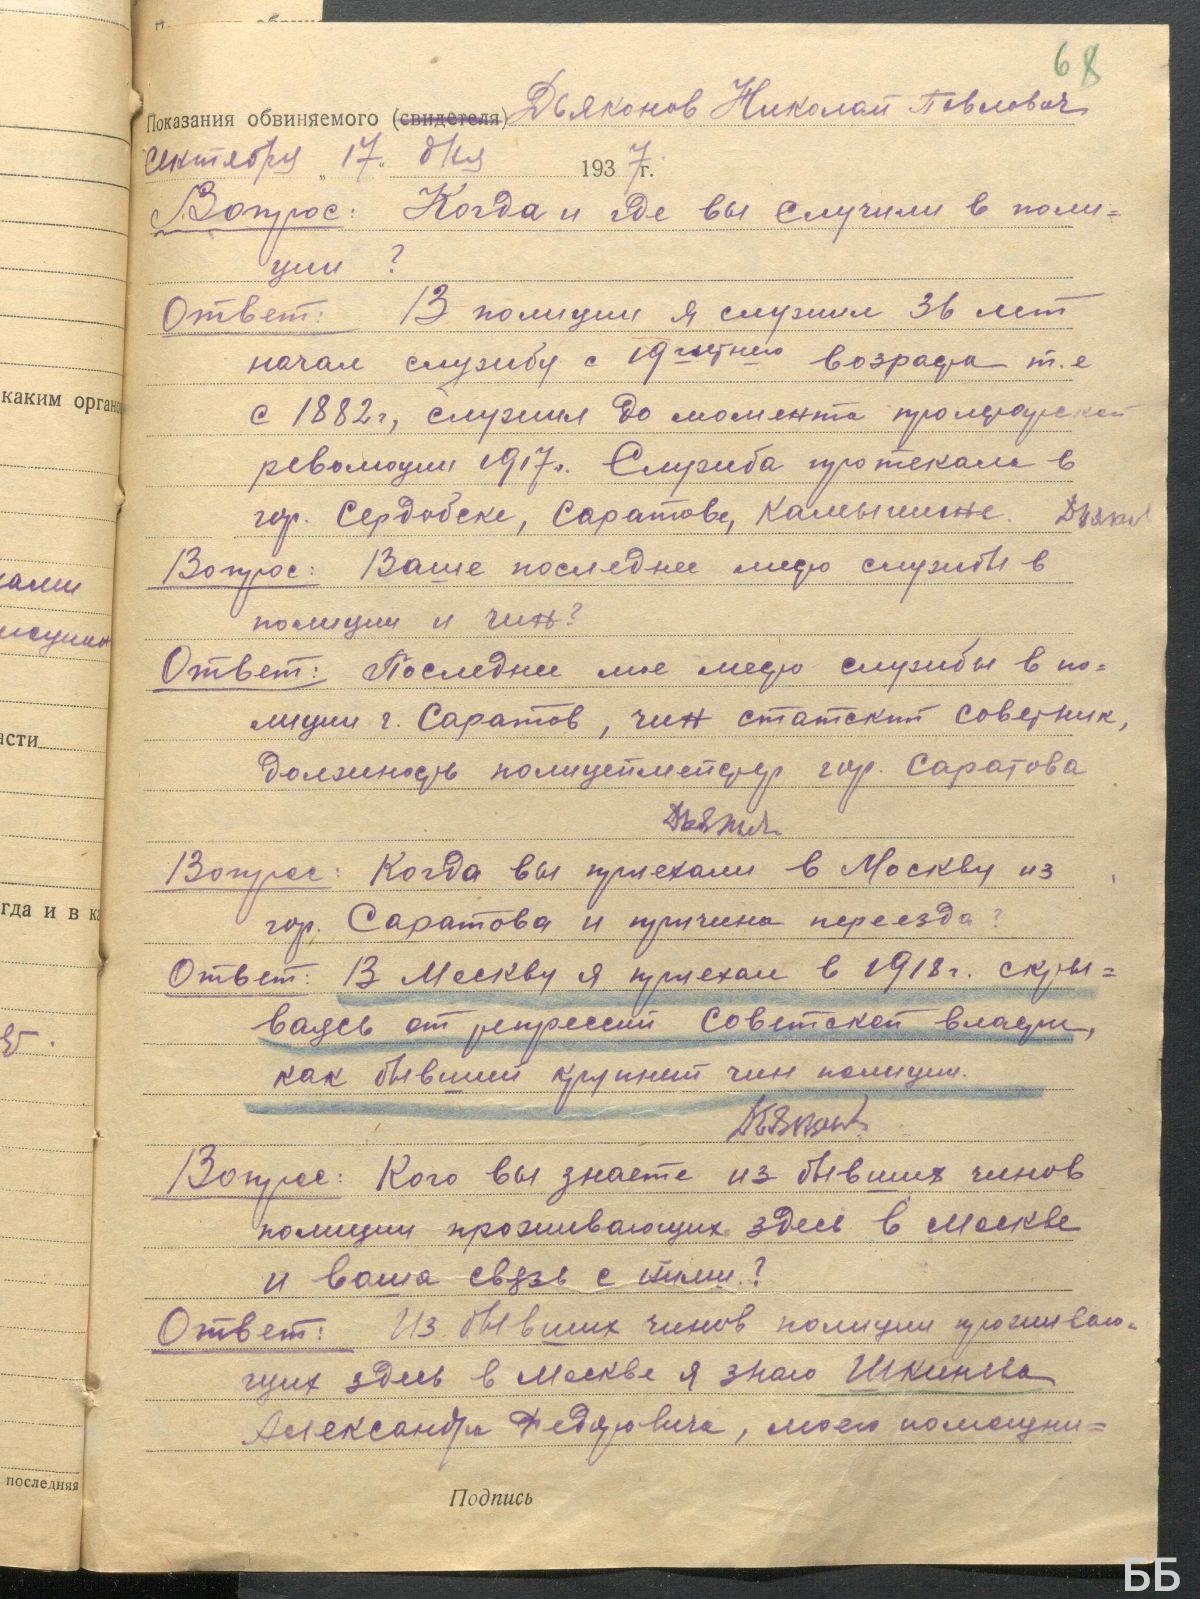 68
Показания обвиняемого (свидетеля) Дьяконов Николай Павлович
сентября „17„ дня 1937 г.
Вопрос: Когда и где вы случили в поли=
ции ?
Ответ: В полиции я служил 36 лет
начал службу с 19 летнего возраста т.е
с 1882 г, служил до момента пролетарской
революции 1917 г. Служба протекала в
гор. Сердобске, Саратове, Камышине. Дьякон
Вопрос: Ваше последнее место службы в
полиции и чин?
Ответ: Последнее мое место службы в по=
лиции г. Саратов, чин статский советник,
должность полицеймейстер гор. Саратова
Дьякон
Вопрос: Когда вы приехали в Москву из
гор. Саратова и причина переезда?
Ответ: В Москву я приехал в 1918 г. скры=
ваясь от репрессий Советской власти,
как бывший крупный чин полиции.
Дьяконов
Вопрос: Кого вы знаете из бывших чинов
полиции проживающих здесь в Москве
и ваша связь с ними?
Ответ: Из бывших чинов полиции проживаю=
щих здесь в Москве я знаю Шкинева
Александра Федоровича, моего помощни=
Подпись
каким органо
ками
асти
гда и в ка
последняя
ББ